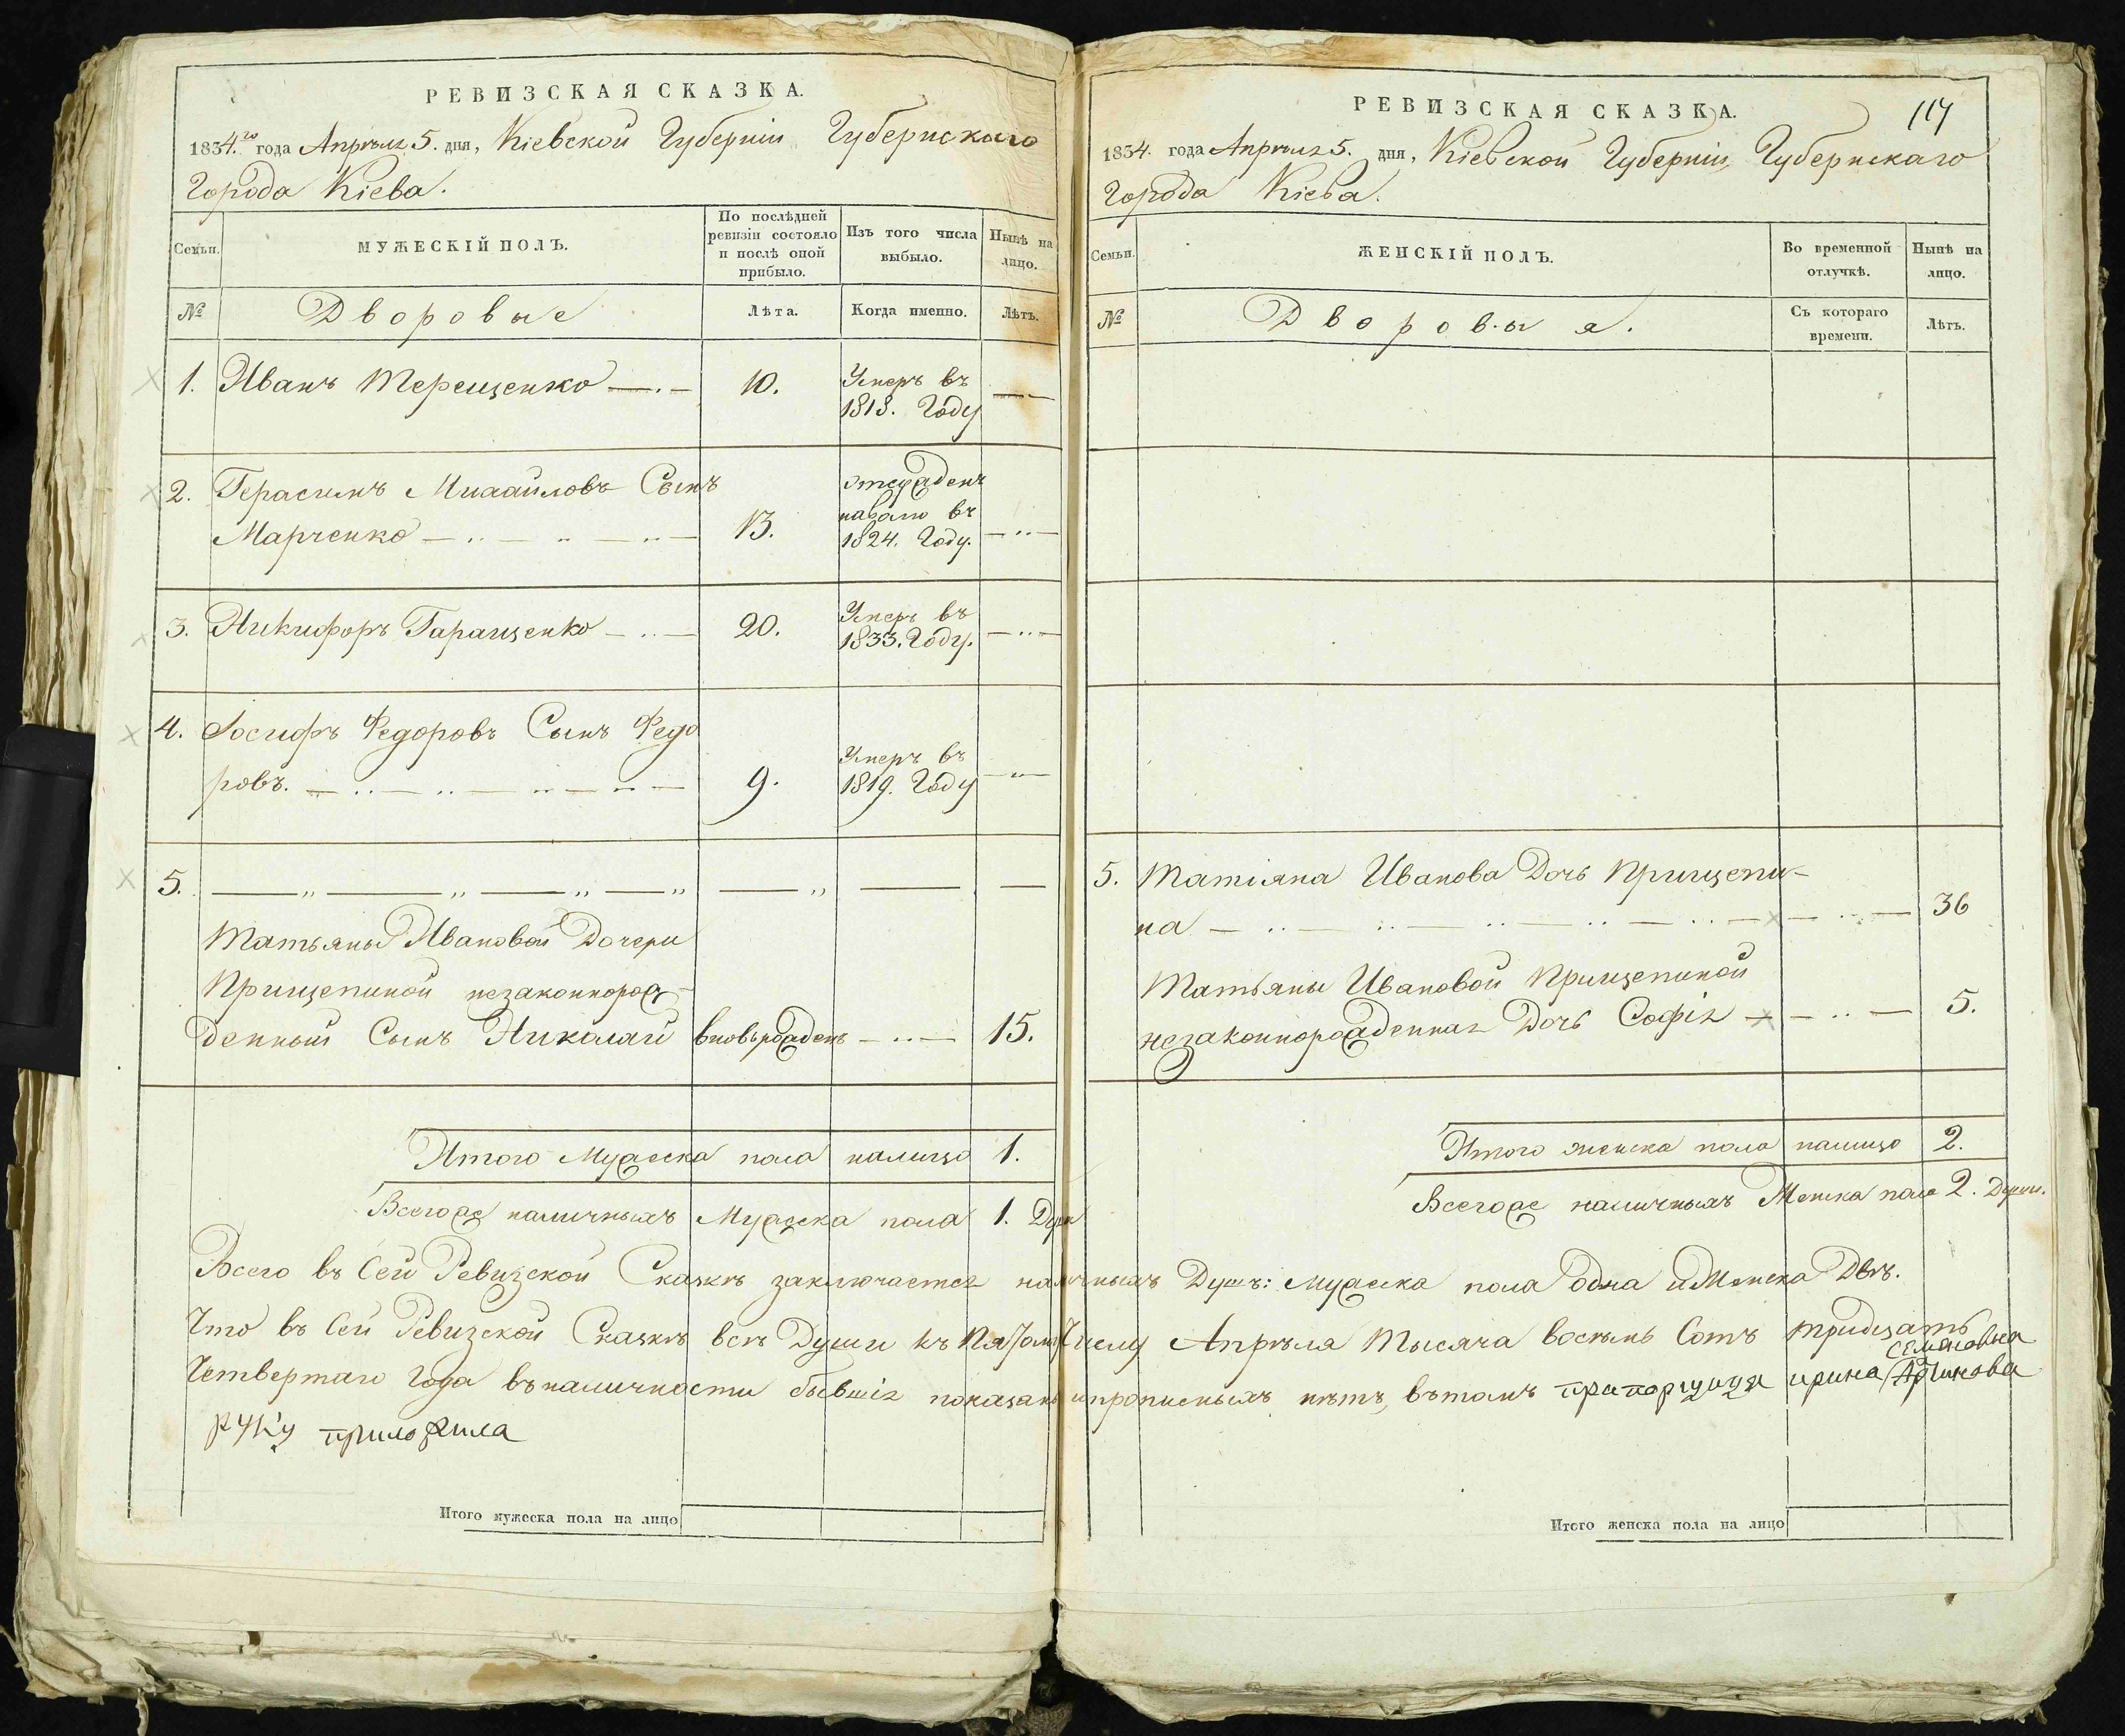 РЕВИЗСКАЯ СКАЗКА.
1834.го года Апрѣля 5. дня, Кіевской Губерніи Губернскаго
Города Кіева.
Семьи.
МУЖЕСКІЙ ПОЛЪ.
По послѣдней
ревизіи состояло
и послѣ оной
прибыло.
Изъ того числа
выбыло.
Нынѣ на
лицо.
№
Дворовые
Лѣта.
Когда именно.
Лѣтъ.
1. Иванъ Терещенко 10. Умеръ въ
1818. Году
2. Герасимъ Михайловъ Сынъ
Марченко 13.
въ
1824. Году.
3. Никифоръ Гаращенко 20. Умеръ въ
1833. Году.
4. Іосифъ Федоровъ Сынъ Федо
ровъ. 9. Умеръ въ
1819. Году
5.
Татьяны Ивановой Дочери
Прищепиной незаконнорож-
денный Сынъ Николай вновьрожденъ 15.
Итого Мужеска пола налицо 1.
Всегоже наличныхъ Мужеска пола 1. Душа
РЕВИЗСКАЯ СКАЗКА.
117
1834. года Апрѣля 5. дня, Кіевской Губерніи, Губернскаго
Города Кіева.
Семьи.
ЖЕНСКІЙ ПОЛЪ.
Во временной
отлучкѣ.
Нынѣ на
лицо.
№
Дворовыя.
Съ котораго
времени.
Лѣтъ.
5. Татіяна Иванова Дочь Прищепи-
на 36
Татьяны Ивановой Прищепиной
незаконнорожденная Дочь Софія 5.
Итого женска пола налицо 2.
Всегоже наличныхъ Женска пола 2. Души.
Всего въ Сей Ревизской Сказкѣ заключается наличныхъ Душъ: мужеска пола одна и Женска Двѣ.
Что въ Сей Ревизской Сказкѣ всѣ Души къ Пятому Числу Апрѣля Тысяча восемь Сотъ тридцать
Четвертаго Года въ наличности бывшія показаны и прописныхъ нѣтъ, вътомъ прапорщица ирина Семеновна
руку приложила
Итого мужеска пола на лицо
Итого женска пола на лицо